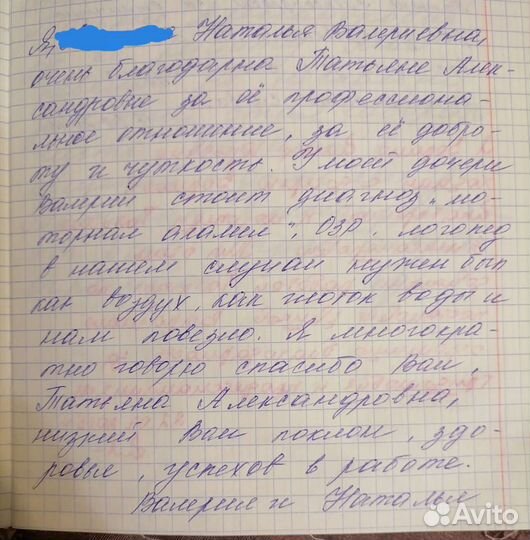 Я, Наталья Валериевна,
очень благодарна Татьяне Алек-
сандровне за её профессиона-
льное отношение, за её добро-
ту и чуткость. У моей дочери
Валерии стоит диагноз „мо-
торная алалия", ОЗР. логопед
в нашем случаи нужен был
как воздух, как глоток воды и
нам повезло. Я многокра-
тно говорю спасибо Вам,
Татьяна Александровна,
низкий Вам поклон, здо-
ровья, успехов в работе.
Валерия и Наталья
Avito